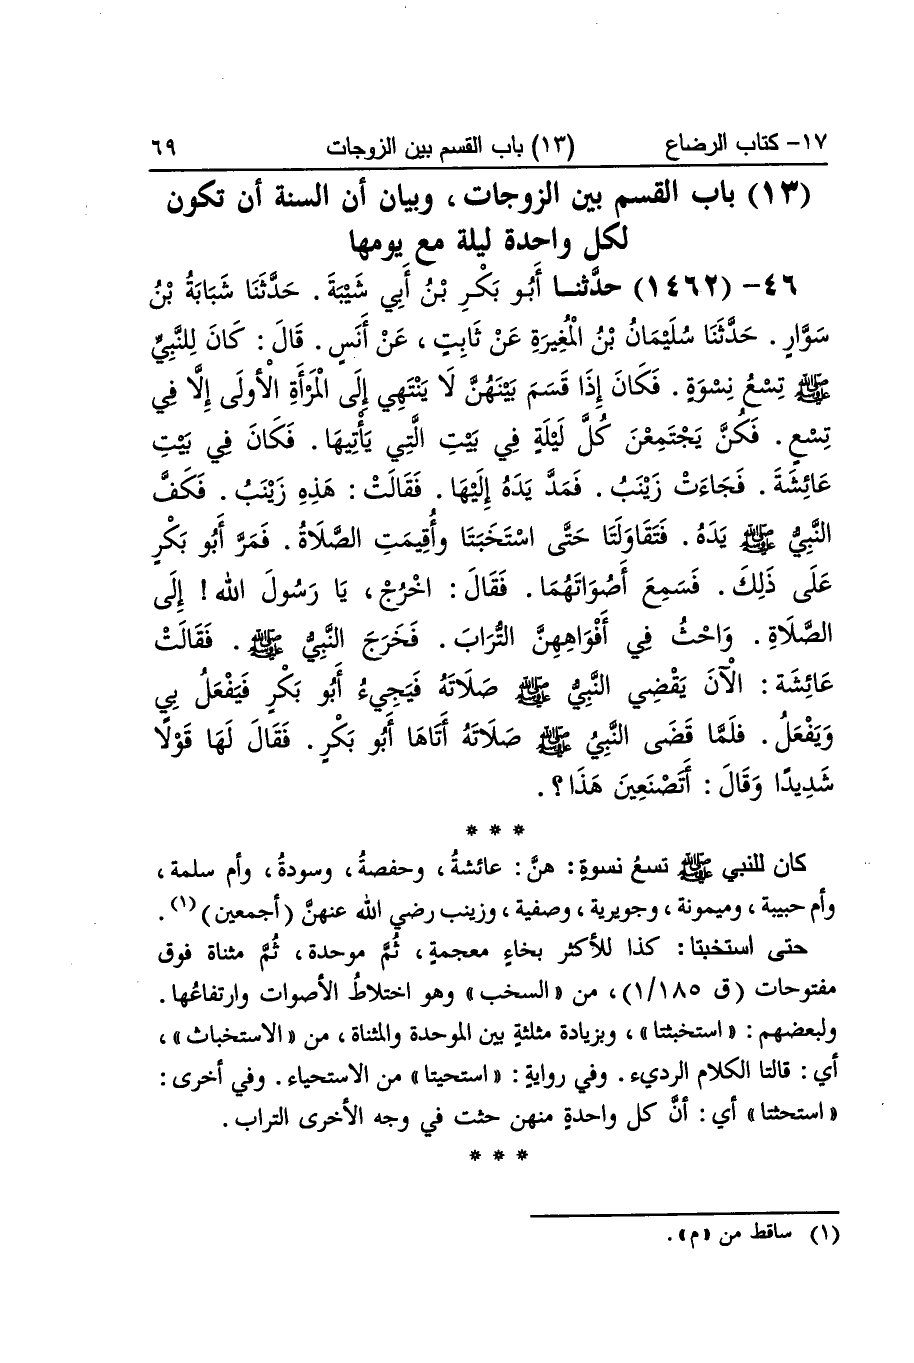 ١٧- كتاب الرضاع (١٣) باب القسم بين الزوجات ٦٩
(١٣) باب القسم بين الزوجات، وبيان أن السنة أن تكون
لكل واحدة ليلة مع يومها
٤٦- (١٤٦٢) حدَّثنـا أَبُو بَكْرِ بْنُ أَبِي شَيْبَةَ. حَدَّثَنَا شَبَابَةُ بْنُ
سَوَّارٍ. حَدَّثَنَا سُلَيْمَانُ بْنُ الْمُغِيرَةِ عَنْ ثَابِتٍ، عَنْ أَنَسٍ. قَالَ: كَانَ لِلنَّبِيِّ
ﷺ تِسْعُ نِسْوَةٍ. فَكَانَ إِذَا قَسَمَ بَيْنَهُنَّ لَا يَنْتَهِي إِلَى الْمَرْأَةِ الْأُولَى إِلَّا فِي
تِسْعٍ. فَكُنَّ يَجْتَمِعْنَ كُلَّ لَيْلَةٍ فِي بَيْتِ الَّتِي يَأْتِيهَا. فَكَانَ فِي بَيْتِ
عَائِشَةَ. فَجَاءَتْ زَيْنَبُ. فَمَدَّ يَدَهُ إِلَيْهَا. فَقَالَتْ: هَذِهِ زَيْنَبُ. فَكَفَّ
النَّبِيُّ ﷺ يَدَهُ. فَتَقَاوَلَتَا حَتَّى اسْتَخَبَتَا وأُقِيمَتِ الصَّلَاةُ. فَمَرَّ أَبُو بَكْرٍ
عَلَى ذَلِكَ. فَسَمِعَ أَصْوَاتَهُمَا. فَقَالَ: اخْرُجْ، يَا رَسُولَ الله! إِلَى
الصَّلَاةِ. وَاحْثُ فِي أَفْوَاهِهِنَّ التُّرَابَ. فَخَرَجَ النَّبِيُّ ﷺ. فَقَالَتْ
عَائِشَة: الْآنَ يَقْضِي النَّبِيُّ ﷺ صَلَاتَهُ فَيَجِيءُ أَبُو بَكْرٍ فَيَفْعَلُ بِي
وَيَفْعَلُ. فلَمَّا قَضَى النَّبِيُ ﷺ صَلَاتَهُ أَتَاهَا أَبُو بَكْرٍ. فَقَالَ لَهَا قَوْلًا
شَدِيدًا وَقَالَ: أَتَصْنَعِينَ هَذَا؟.
* * *
كان للنبي ﷺ تسعُ نسوةٍ: هنَّ: عائشةُ، وحفصةُ، وسودةُ، وأم سلمة،
وأم حبيبة، وميمونة، وجويرية، وصفية، وزينب رضي الله عنهنَّ (أجمعين)(١).
حتى استخبتا: كذا للأكثر بخاءٍ معجمةٍ، ثُمَّ موحدة، ثُمَّ مثناة فوق
مفتوحات (ق ١/١٨٥)، من «السخب» وهو اختلاطُ الأصوات وارتفاعُها.
ولبعضهم: «استخبثتا»، وبزيادة مثلثةٍ بين الموحدة والمثناة، من «الاستخباث»،
أي: قالتا الكلام الرديء. وفي روايةٍ: «استحيتا» من الاستحياء. وفي أخرى:
«استحثتا» أي: أنَّ كل واحدةٍ منهن حثت في وجه الأخرى التراب.
* * *
(١) ساقط من «م».